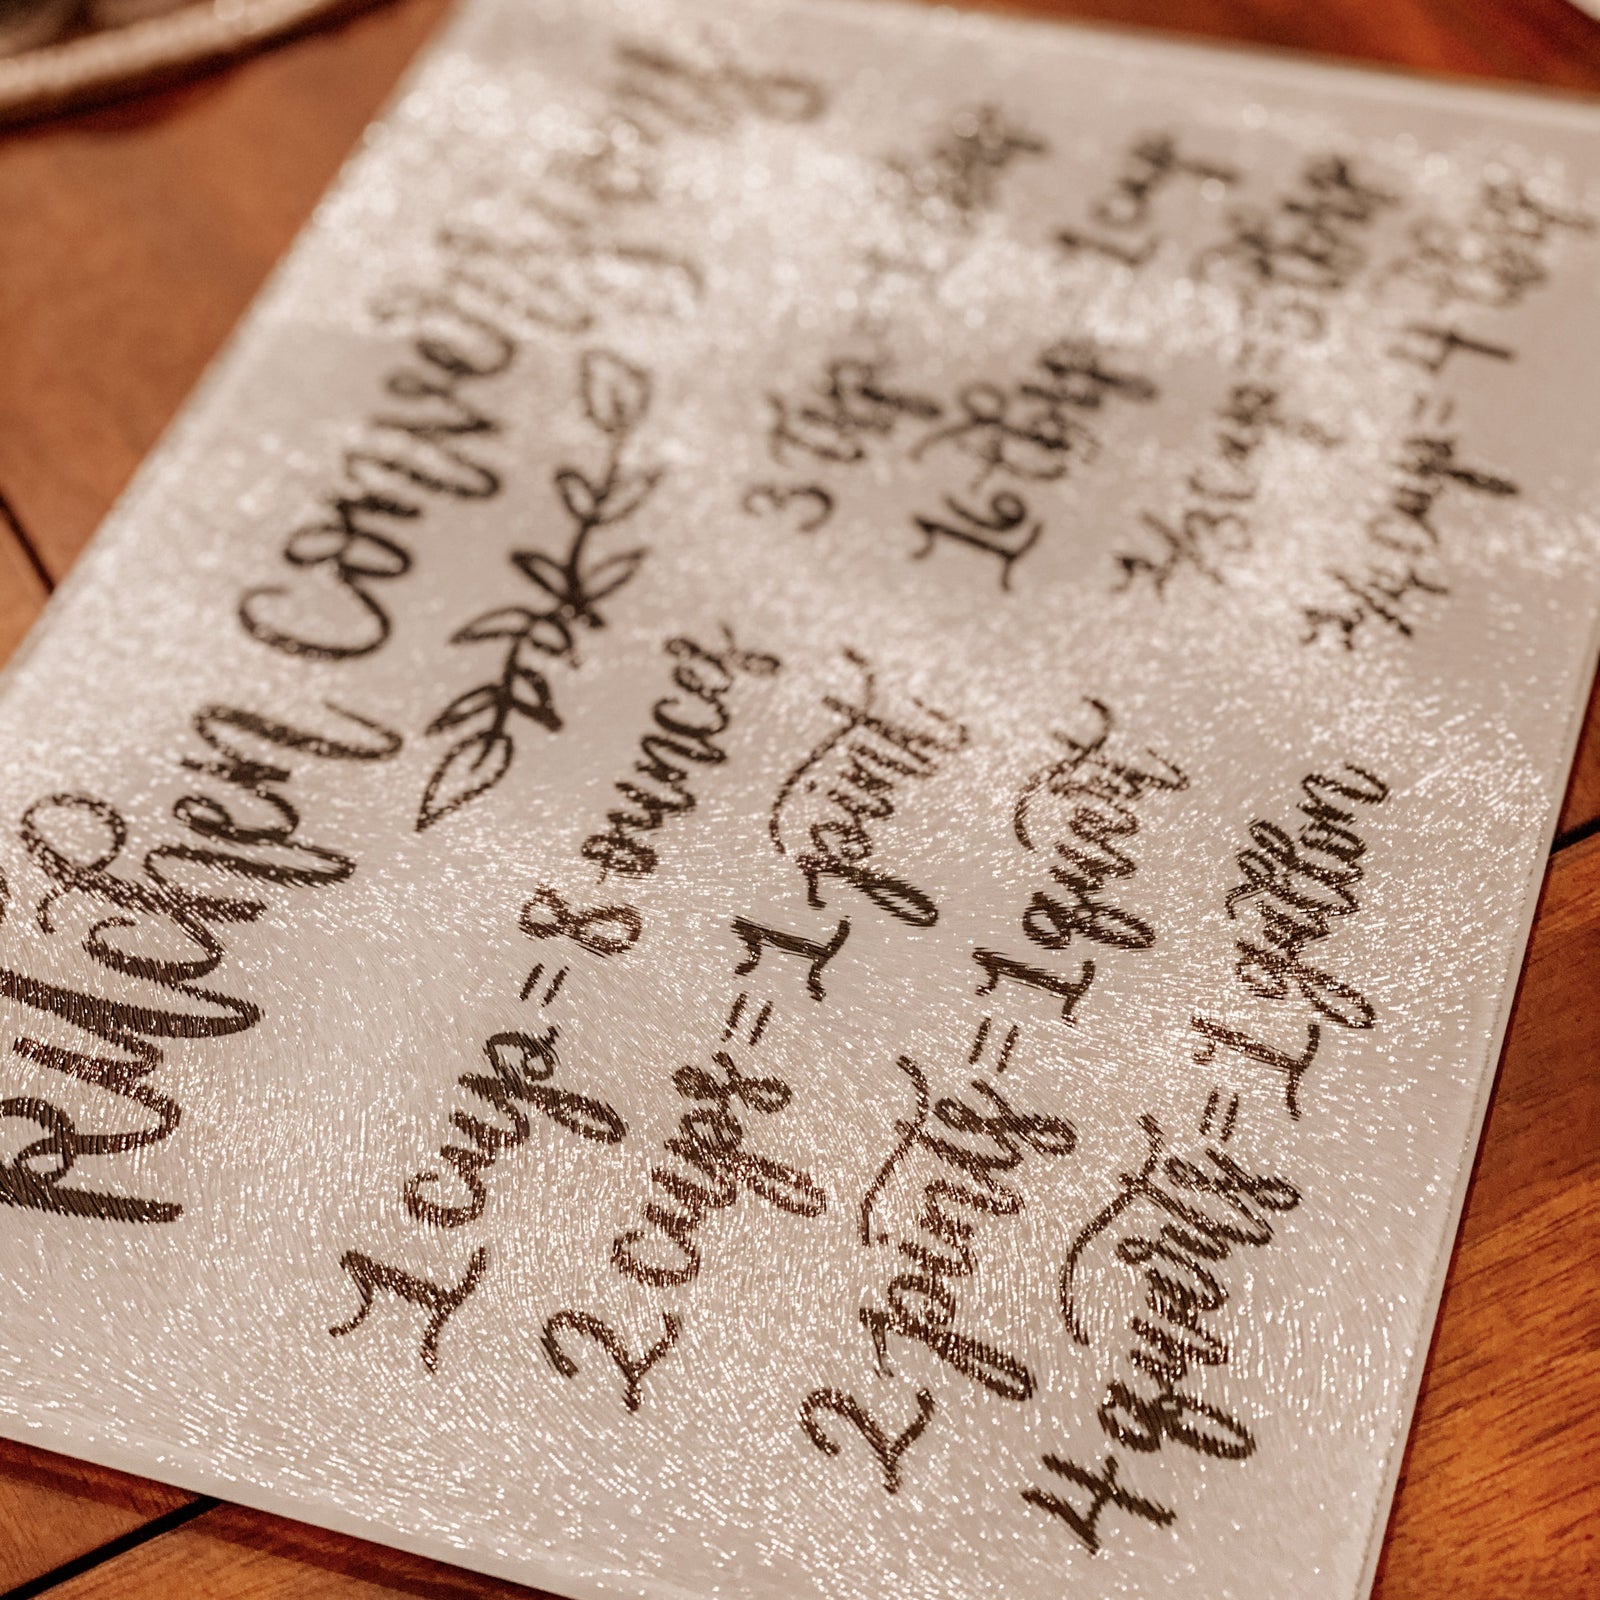 Kitchen Conversions
1 cup = 8 ounces
2 cups = 1 pint
2 pints = 1 quart
4 quarts = 1 gallon
3 tsp 1 tbsp
16 tbsp 1 cup
1/3 cup = 5 tbsp
1/4 cup = 4 tbsp